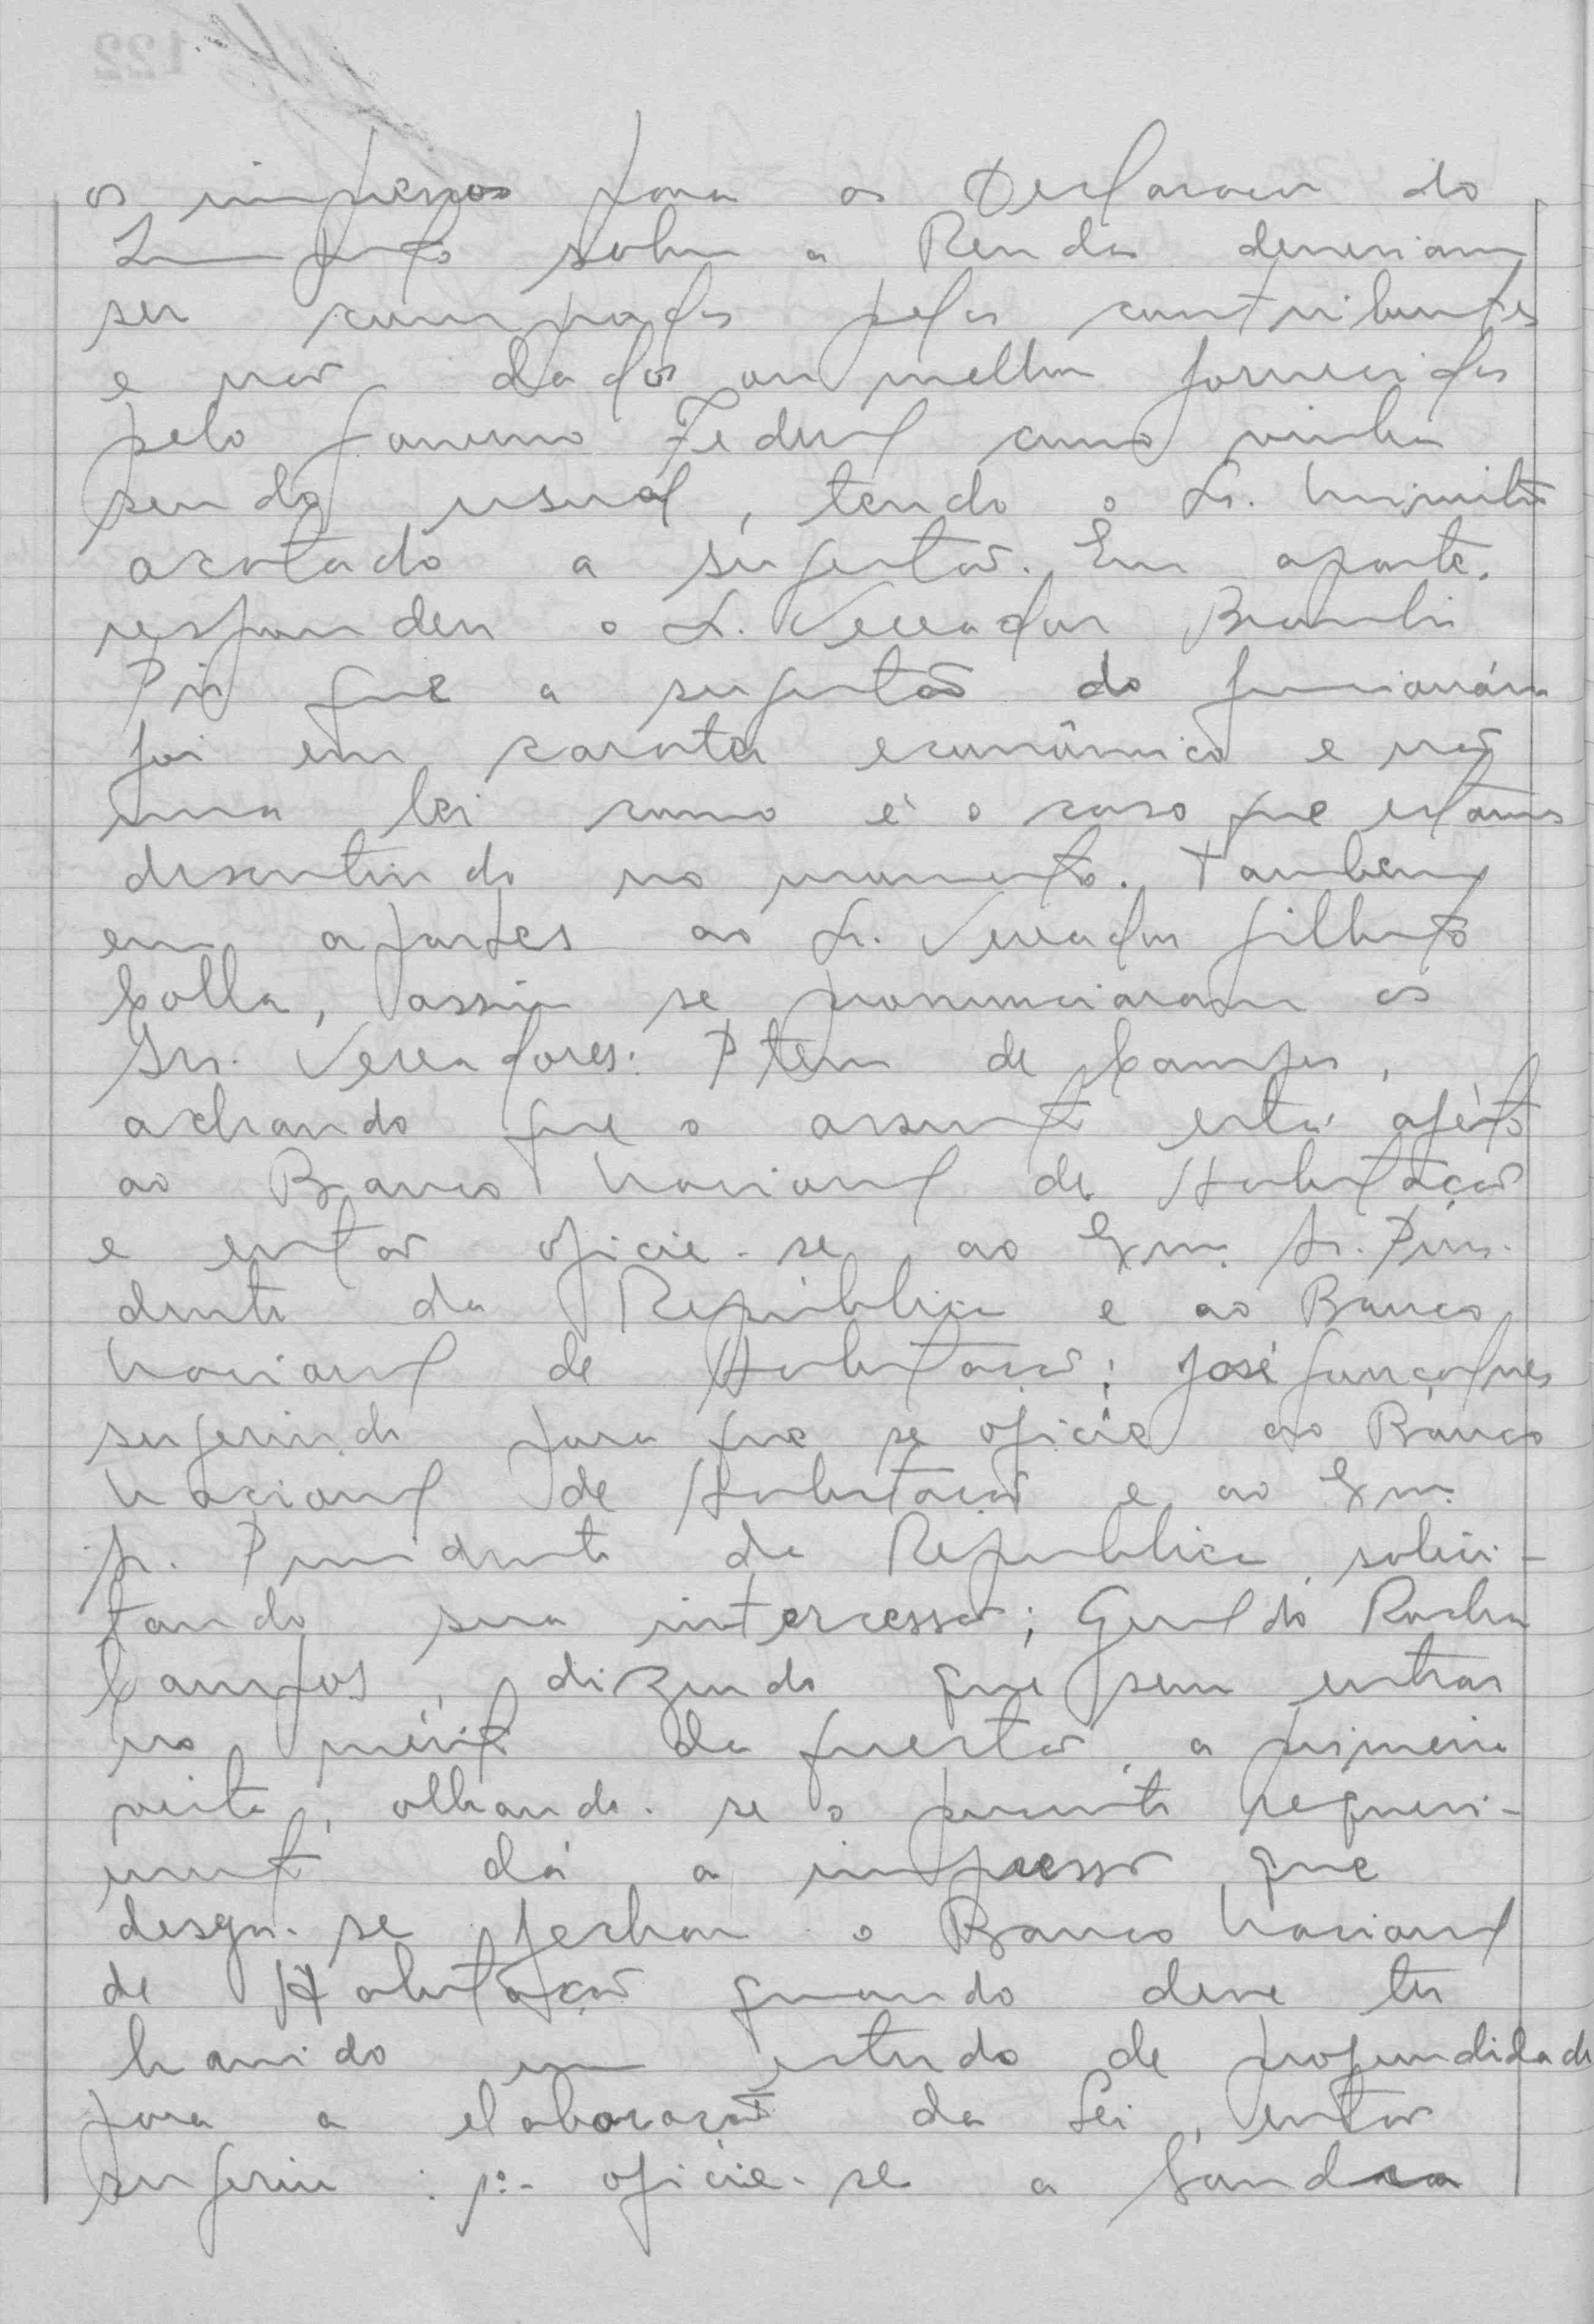 os impressos para as Declaração do
Imposto sobre a Renda deveriam
ser comprados pelos contribuintes
e não dados ou melhor fornecidos
pelo Governo Federal como vinha
sendo usual, tendo o Sr. Ministro
acatado a sugestão. Em aparte,
respondeu o Sr. Vereador
que a sugestão do funcionário
foi em carater econômico e não
uma lei como é o caso que estamos
discutindo no momento. Tambem
em apartes ao Sr. Vereador Gilberto
Colla, assim se pronunciaram os
Srs. Vereadores: de Campos,
achando que o assunto está aféto
ao Banco Nacional de Habitação
e então oficie-se ao Exmo. Sr. Presi-
dente da República e ao Banco
Nacional de Habitação; José Gonçalves
sugerindo para que se oficie ao Banco
Nacional de Habitação e ao Exmo.
Sr. Presidente da Republica, solici-
tando sua intercessão; Geraldo Rocha
Campos, dizendo que sem entrar
no mérito da questão, a primeira
vista, olhando-se o presente requeri-
mento dá a impressão que
deseja-se fechar o Banco Nacional
de Habitação quando deve ter
havido um estudo de profundidade
para a elaboração da Lei, então
sugeriu: 1º- oficie-se a